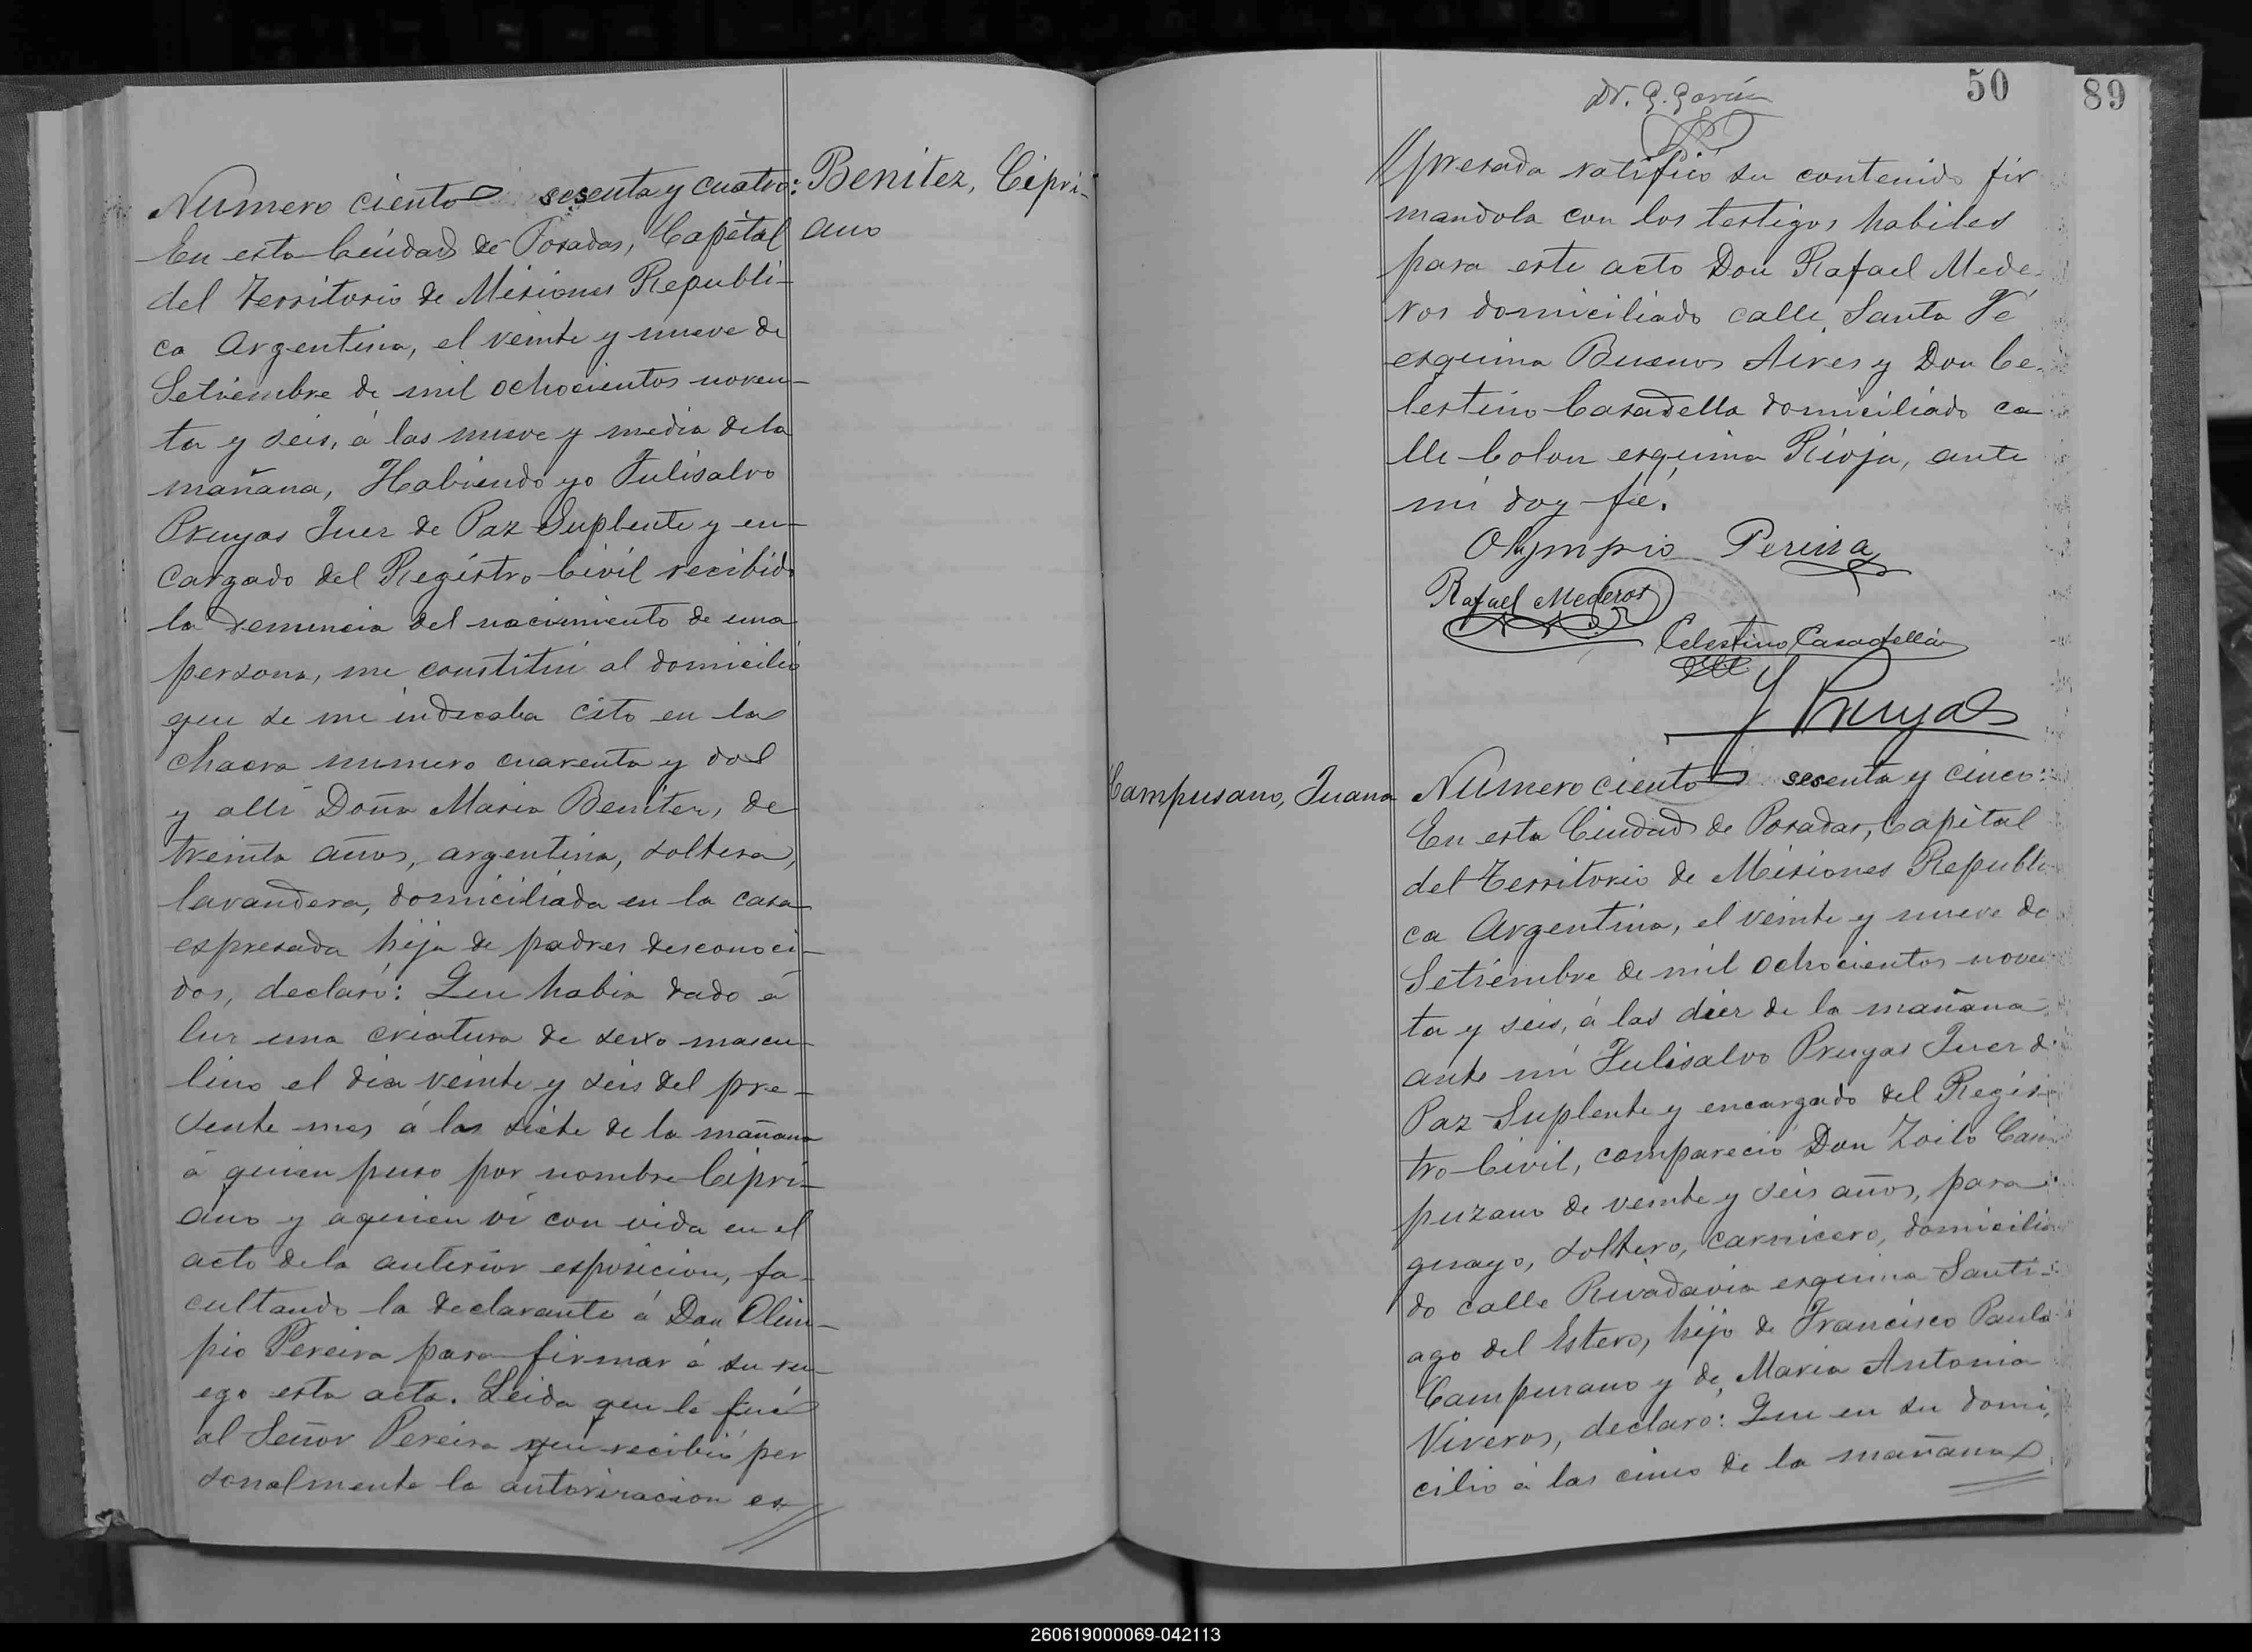 Numero ciento sesenta y cuatro:
En esta Ciudad de Posadas, Capital
del Territorio de Misiones Republi-
ca Argentina, el veinte y nueve de
Setiembre de mil ochocientos noven-
ta y seis, á las nueve y media dela
mañana, Habiendo yo Fulisalvo
Pruyas Juez de Paz Suplente y en-
cargado del Registro Civil recibido
la denuncia del nacimiento de una
persona, me constituí al domicilio
que se me indicaba cito en la
chacra numero cuarenta y dos
y alli Doña Maria Benitez, de
treinta años, argentina, soltera,
lavandera, domiciliada en la casa
espresada hija de padres desconoci-
dos, declaró: Que habia dado á
luz una criatura de sexo mascu-
lino el dia veinte y seis del pre-
sente mes á las siete de la mañana
á quien puso por nombre Cipri-
ano y aquien vi con vida en el
acto dela anterior esposicion, fa-
cultando la declarante á Don Olim-
pio Pereira para firmar á su ru-
ego esta acta. Leida que le fué
al Señor Pereira que recibió per
sonalmente la autorizacion es
Benitez, Cipri-
ano
Dr. G. Garcín
50
89
presada ratificó su contenido fir
mandola con los testigos habiles
para este acto Don Rafael Mede-
ros domiciliado calle Santa Fé
esquina Buenos Aires y Don Ce-
lestino Casadella domiciliado ca
lle Colon esquina Rioja, ante
mí doy fé.
Olympio Pereira
Rafael Mederos
Celestino Casadella
F Pruyas
Campusano, Juana
Numero ciento sesenta y cinco:
En esta Ciudad de Posadas, Capital
del Territorio de Misiones Republi
ca Argentina, el veinte y nueve de
Setiembre de mil ochocientos noven
ta y seis, á las diez de la mañana
ante mí Fulisalvo Pruyas Juez d
Paz Suplente y encargado del Regis
tro Civil, compareció Don Zoilo Cam
puzano de veinte y seis años, para
guayo, soltero, carnicero, domicilia
do calle Rivadavia esquina Santi-
ago del Estero, hijo de Francisco Paula
Campuzano y de Maria Antonia
Viveros, declaro: Que en su domi
cilio á las cinco de la mañana
260619000069-042113